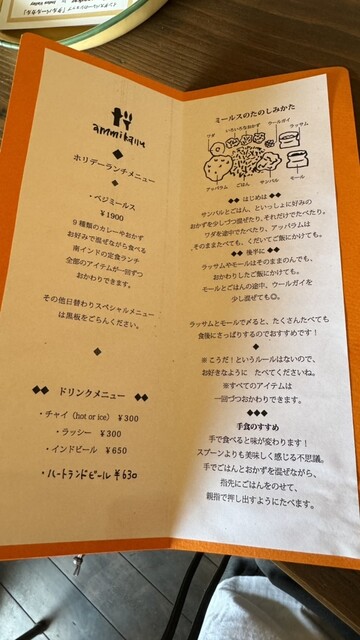 ammikallu
ホリデーランチメニュー
・ベジミールス
¥1900
9種類のカレーやおかず
お好みで混ぜながら食べる
南インドの定食ランチ
全部のアイテムが一回ずつ
おかわりできます。
その他日替わりスペシャルメニュー
は黒板をごらんください。
ドリンクメニュー
・チャイ（hot or ice） ¥300
・ラッシー ¥300
・インドビール ¥650
・ハートランドビール ¥630
ミールスのたのしみかた
ワダ
いろいろなおかず
ウールガイ
ラッサム
アッパラム
ごはん
サンバル
モール
はじめは
サンバルとごはん、といっしょに好みの
おかずを少しづつ混ぜたり、それだけでたべたり。
ワダを途中でたべたり、アッパラムは
そのままたべても、くだいてご飯にかけても。
後半に
ラッサムやモールはそのままのんでも、
おかわりしたご飯にかけても。
モールとごはんの途中、ウールガイを
少し混ぜても◎。
ラッサムとモールで〆ると、たくさんたべても
食後にさっぱりするのでおすすめです！
※こうだ！というルールはないので、
お好きなように たべてくださいね。
※すべてのアイテムは
一回づつおかわりできます。
手食のすすめ
手で食べると味が変わります！
スプーンよりも美味しく感じる不思議。
手でごはんとおかずを混ぜながら、
指先にごはんをのせて、
親指で押し出すようにたべます。